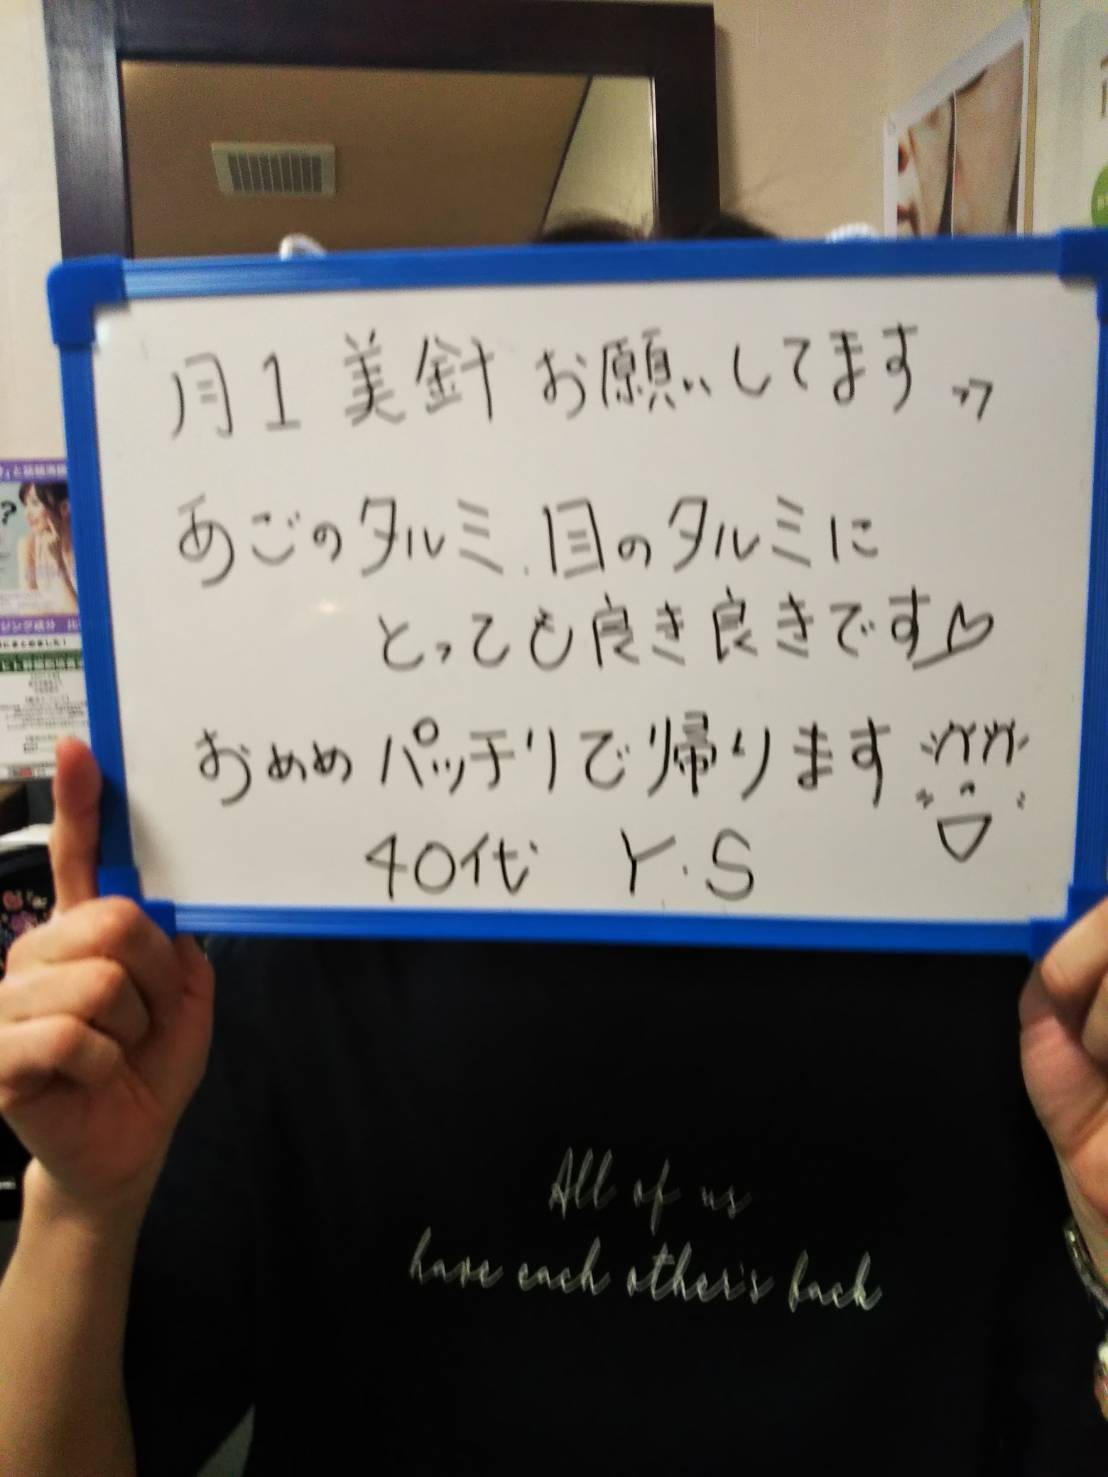 月1 美針 お願いしてます〃
あごのタルミ、目のタルミに
とっても良き良きです♡
おめめパッチリで帰ります
40代 Y.S
All of us
have each other's back